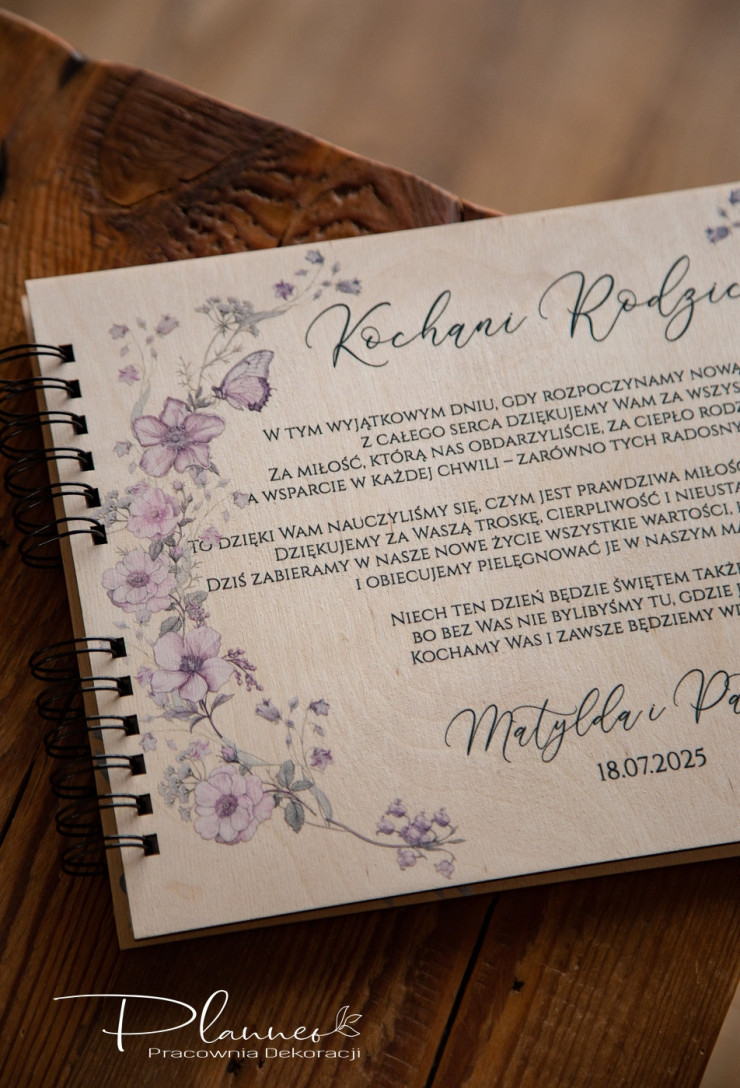 Kochani Rodzic
W TYM WYJĄTKOWYM DNIU, GDY ROZPOCZYNAMY NOWĄ
Z CAŁEGO SERCA DZIĘKUJEMY WAM ZA WSZYS
ZA MIŁOŚĆ, KTÓRĄ NAS OBDARZYLIŚCIE, ZA CIEPŁO RODZ
A WSPARCIE W KAŻDEJ CHWILI – ZARÓWNO TYCH RADOSNY
TO DZIĘKI WAM NAUCZYLIŚMY SIĘ, CZYM JEST PRAWDZIWA MIŁOŚĆ
DZIĘKUJEMY ZA WASZĄ TROSKĘ, CIERPLIWOŚĆ I NIEUSTA
DZIŚ ZABIERAMY W NASZE NOWE ŻYCIE WSZYSTKIE WARTOŚCI,
I OBIECUJEMY PIELĘGNOWAĆ JE W NASZYM MA
NIECH TEN DZIEŃ BĘDZIE ŚWIĘTEM TAKŻE
BO BEZ WAS NIE BYLIBYŚMY TU, GDZIE J
KOCHAMY WAS I ZAWSZE BĘDZIEMY WD
Matylda i Pa
18.07.2025
Planneo
Pracownia Dekoracji